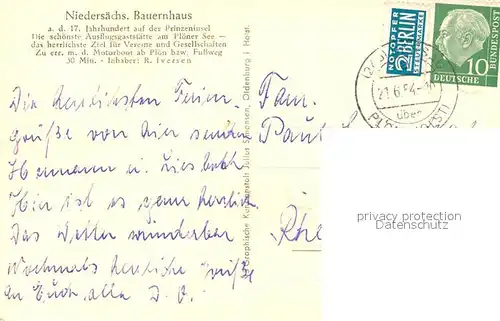 Niedersächs. Bauernhaus
a. d. 17. Jahrhundert auf der Prinzeninsel
Die schönste Ausflugsgaststätte am Plöner See —
das herrlichste Ziel für Vereine und Gesellschaften
Zu err. m. d. Motorboot ab Plön bzw. Fußweg
30 Min. - Inhaber: R. Iversen
Die herzlichsten Ferien-
grüße von hier senden
Hermann u. Liesbeth
Hier ist es ganz herrlich
Das Wetter wunderbar
Nochmals herzliche Grüße
an Euch alle D. O.
Graphische Kunstanstalt Julius Simonsen, Oldenburg i. Holst.
Fam.
Paul
NOTOPFER
2 BERLIN
STEUERMARKE
DEUTSCHE
BUNDESPOST
10
21.6.54
über
PLÖN (HOLST)
privacy protection
www.ansichtskartenhandel.de